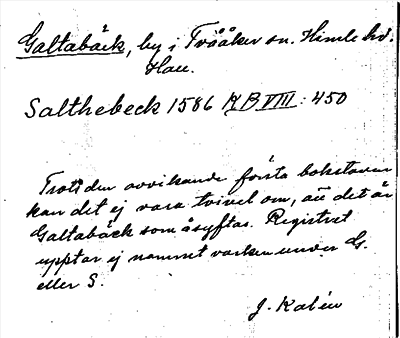 Galtabäck, by i Tvååker sn. Himle hd.
Hall.
Salthebeck 1586 KB VIII: 450
Trots den avvikande första bokstaven
kan det ej vara tvivel om, att det är
Galtabäck som åsyftas. Registret
upptar ej namnet varken under G.
eller S.
J. Kalén